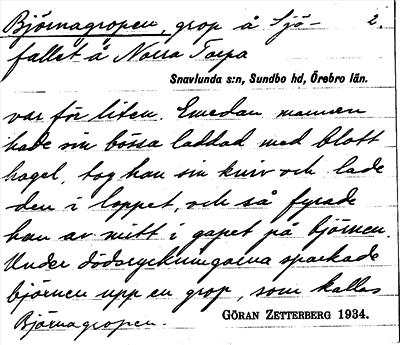 Björnagropen, grop å Sjö- 2.
fallet å Norra Torpa
Snavlunda s:n, Sundbo hd, Örebro län.
var för liten. Emedan mannen
hade sin bössa laddad med blott
hagel, tog han sin kniv och lade
den i loppet, och så fyrade
han av mitt i gapet på björnen.
Under dödsryckningarna sparkade
björnen upp en grop, som kallas
Björnagropen.
GÖRAN ZETTERBERG 1934.